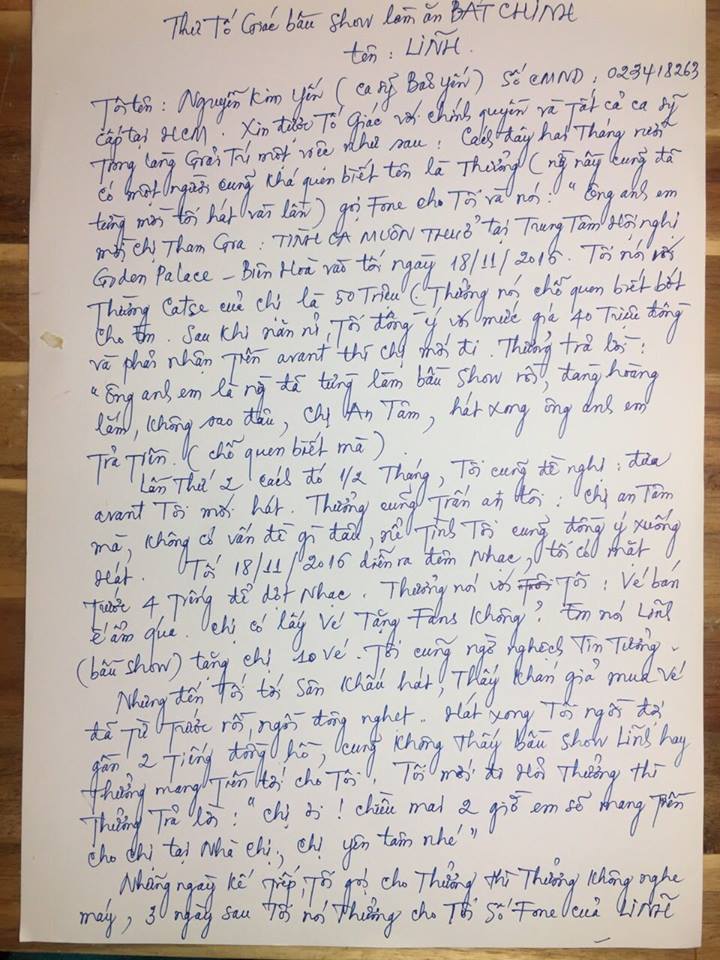 Thư Tố Giác bầu show làm ăn BẤT CHÍNH
tên : LiNH.
Tôi tên : Nguyễn Kim Yến ( ca sỹ Bảo Yến ) Số CMND : 023418263
cấp tại HCM . Xin được Tố Giác với chính quyền và Tất cả ca sỹ
Trong làng Giải Trí một việc như sau : Cách đây hai Tháng rưỡi
có một người cũng khá quen biết tên là Thưởng ( ng này cũng đã
từng mời tôi hát vài lần ) gọi Fone cho Tôi và nói : " Ông anh em
mời chị Tham Gia : TÌNH CA MUÔN THUỞ tại Trung Tâm Hội nghị
Goden Palace - Biên Hoà vào tối ngày 18/11/2016 . Tôi nói với
Thưởng Catse của chị là 50 Triệu ( Thưởng nói chỗ quen biết bớt
cho em . Sau khi năn nỉ, Tôi đồng ý với mức giá 40 Triệu đồng
và phải nhận Tiền avant thì chị mới đi . Thưởng trả lời :
" Ông anh em là ng đã từng làm bầu show rồi, đàng hoàng
lắm, không sao đâu, chị An Tâm, hát xong ông anh em
Trả Tiền . ( chỗ quen biết mà )
Lần Thứ 2 cách đó 1/2 Tháng, Tôi cũng đề nghị : đưa
avant Tôi mới hát . Thưởng cũng Trấn an tôi : Chị an Tâm
mà, không có vấn đề gì đâu, nể Tình Tôi cũng đồng ý xuống
Hát . Tối 18/11/2016 diễn ra đêm Nhạc, tôi có mặt
trước 4 Tiếng để dợt Nhạc . Thưởng nói với Tôi : Vé bán
ế ẩm quá . chị có lấy Vé Tặng Fans không ? Em nói Linh
(bầu show) tặng chị 10 vé . Tôi cũng ngờ nghệch Tin Tưởng .
Nhưng đến Tối tới Sân khấu hát, Thấy khán giả mua vé
đã từ trước rồi, ngồi đông nghẹt .. Hát xong Tôi ngồi đợi
gần 2 Tiếng đồng hồ, cũng không Thấy bầu show Linh hay
Thưởng mang Tiền tới cho Tôi . Tôi mới đi Hỏi Thưởng thì
Thưởng Trả lời : " Chị ơi ! chiều mai 2 giờ em sẽ mang Tiền
cho chị tại Nhà chị, chị yên tâm nhé "
Những ngày kế tiếp, Tôi gọi cho Thưởng thì Thưởng không nghe
máy, 3 ngày sau Tôi nói Thưởng cho Tôi Số Fone của LiNH